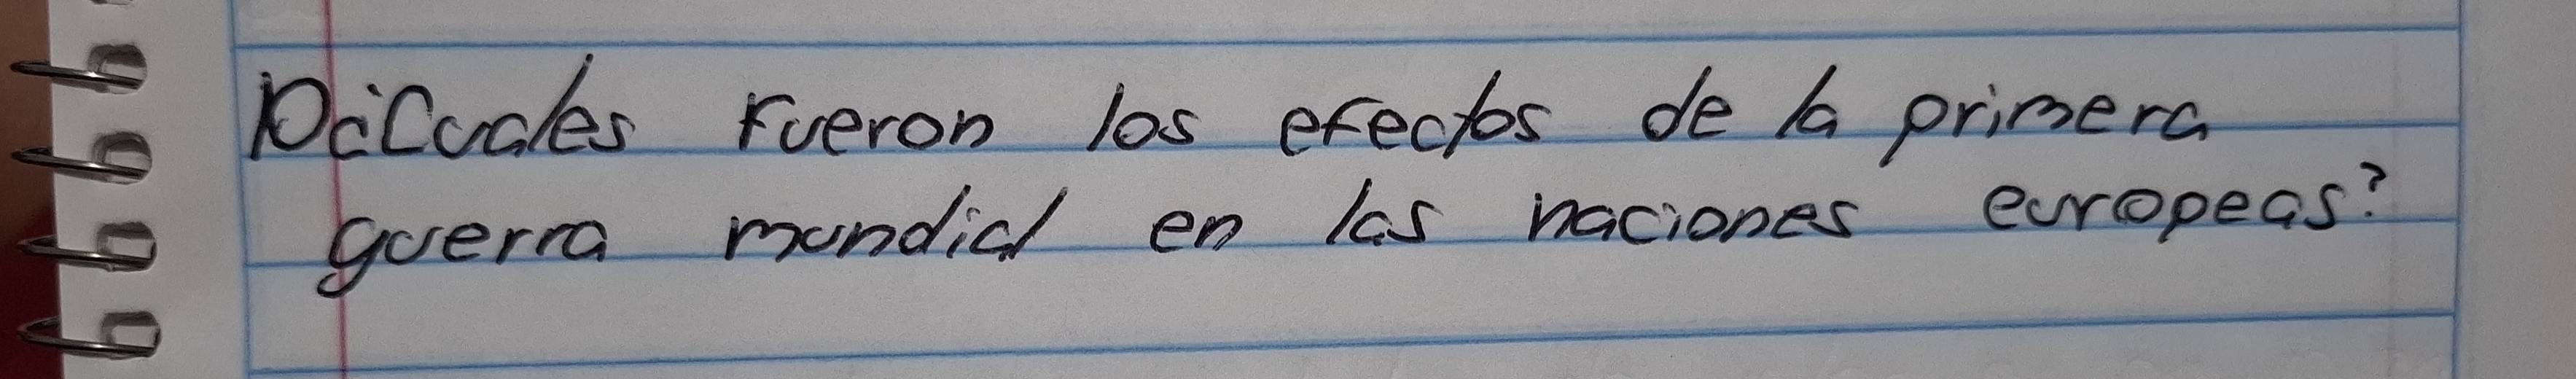 D¿Cuales fueron los efectos de la primera
guerra mundial en las naciones europeas?